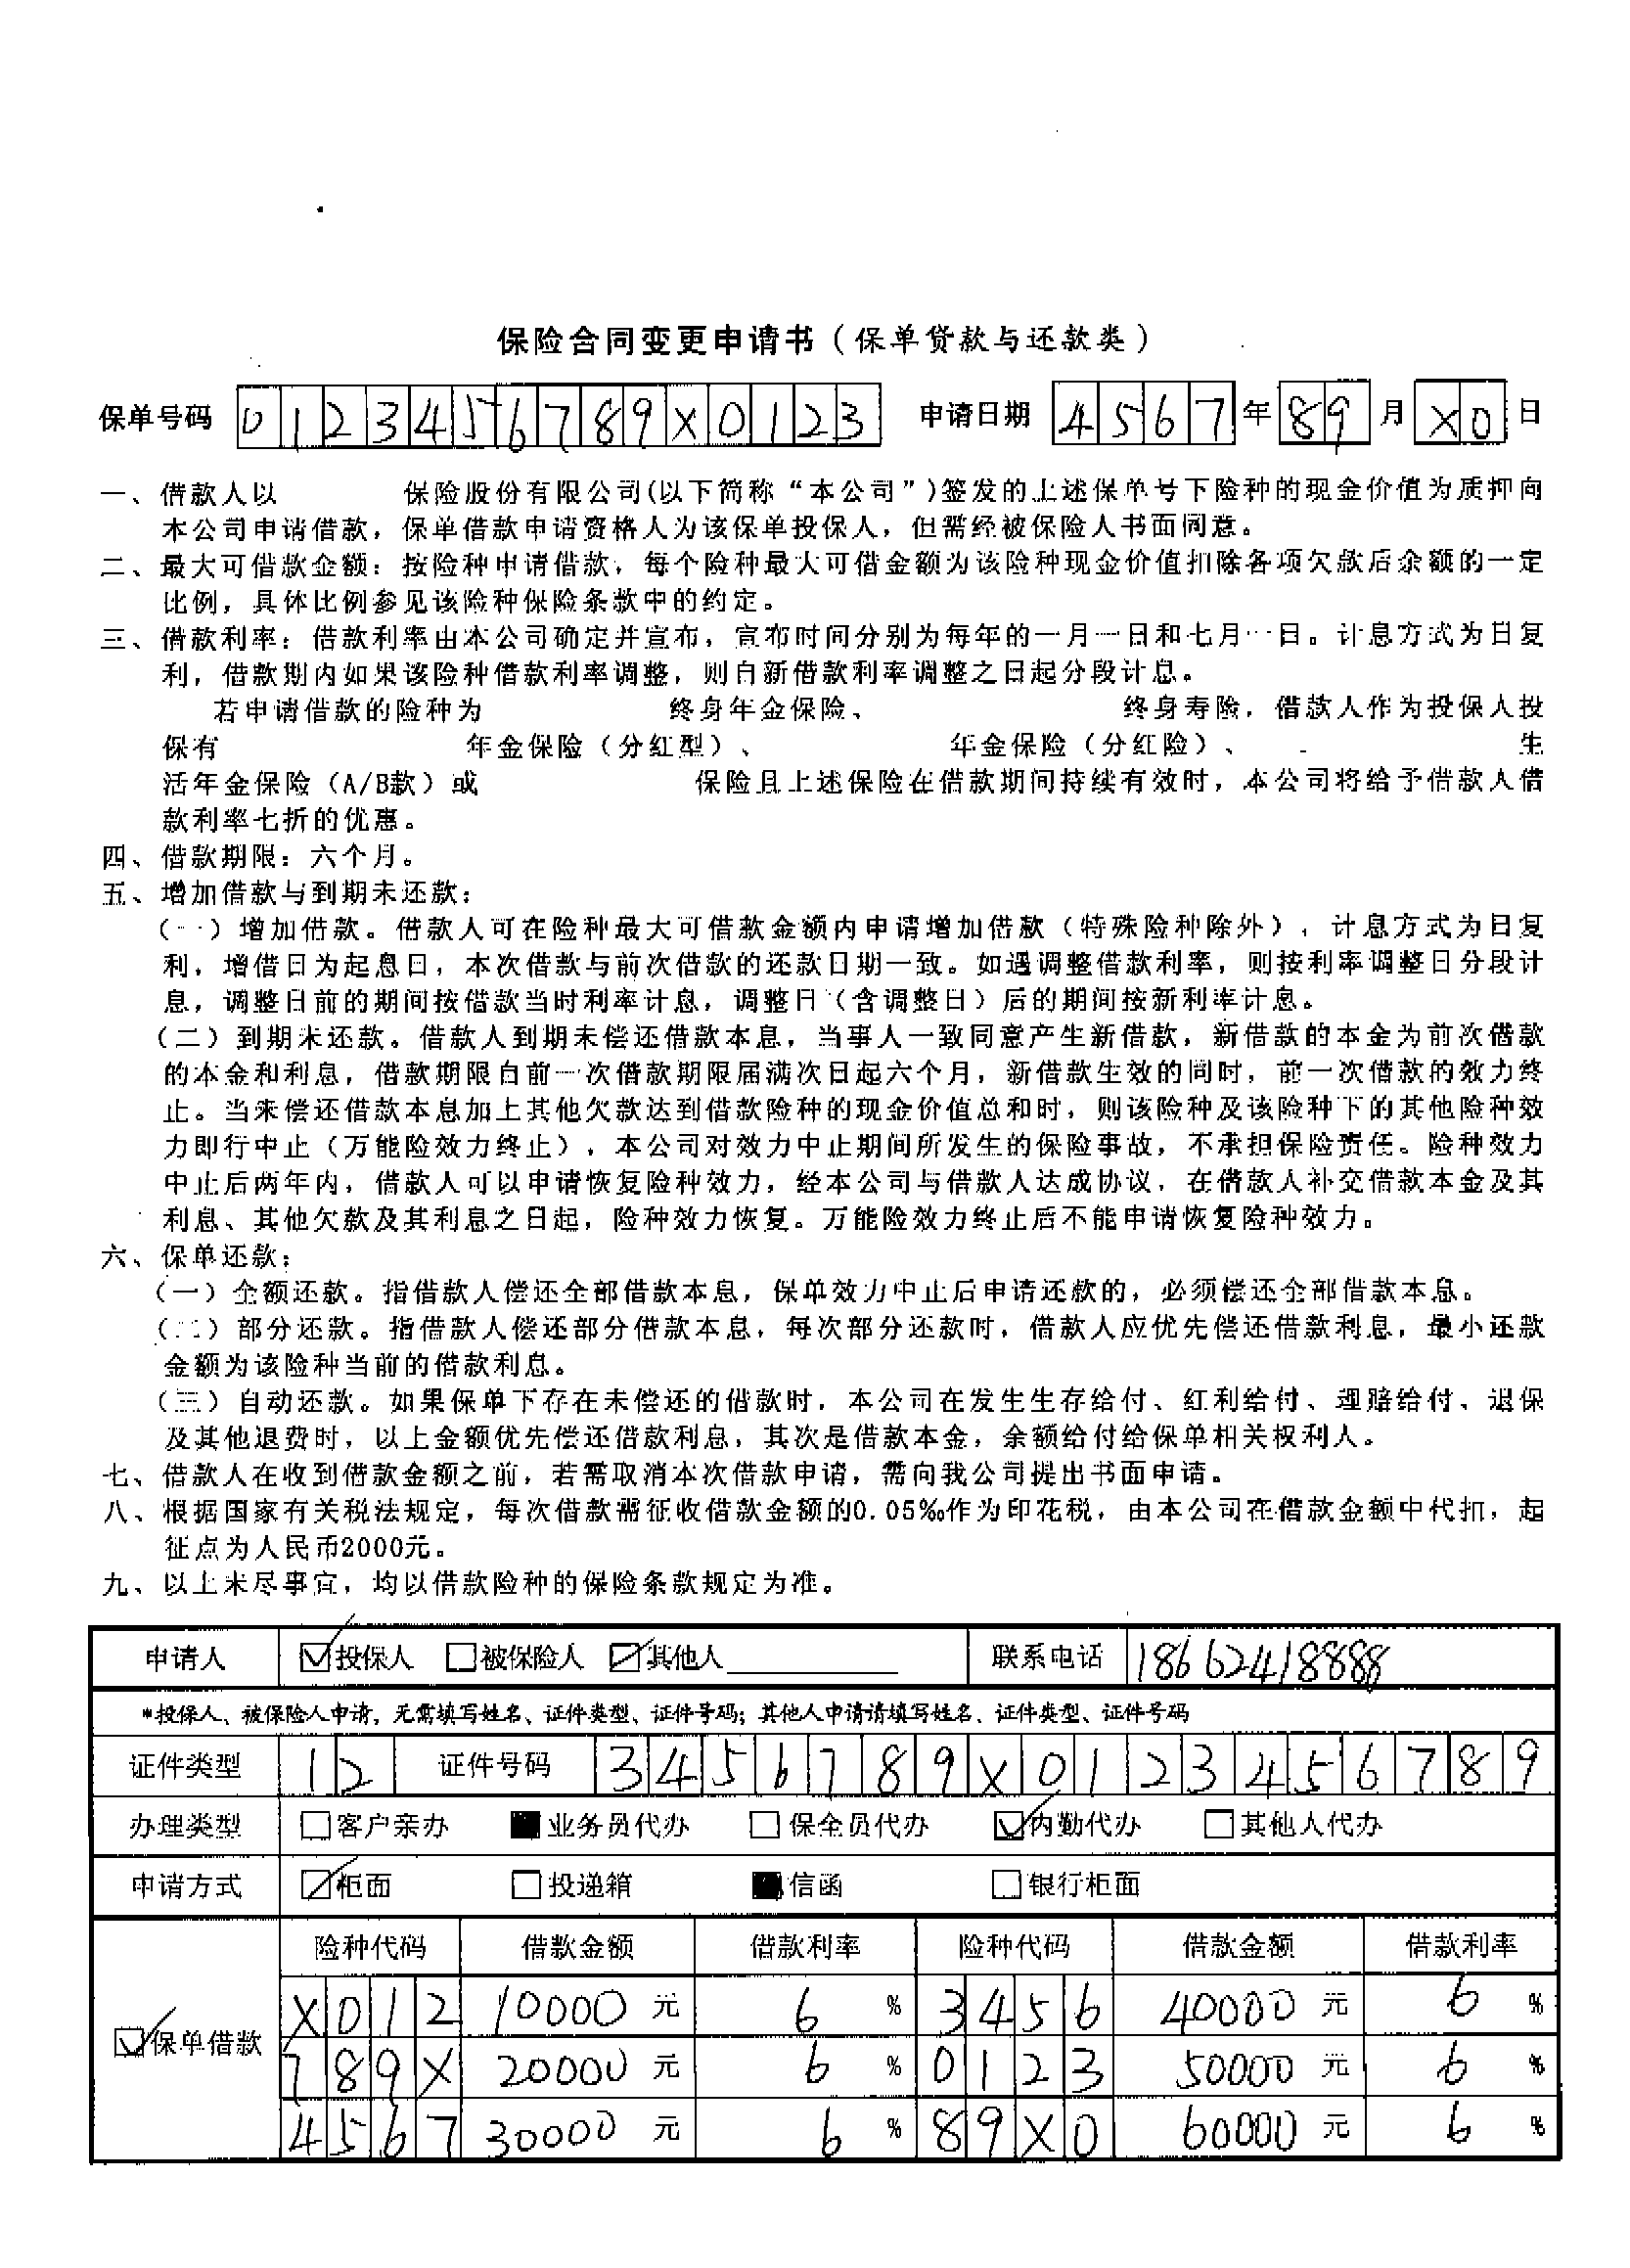 保险合同变更申请书（保单贷款与还款类）
保单号码 0123456789X0123 申请日期 4567年89月X0日
一、借款人以 保险股份有限公司(以下简称“本公司”)签发的上述保单号下险种的现金价值为质押向
本公司申请借款，保单借款申请资格人为该保单投保人，但需经被保险人书面同意。
二、最大可借款金额：按险种申请借款，每个险种最大可借金额为该险种现金价值扣除各项欠款后余额的一定
比例，具体比例参见该险种保险条款中的约定。
三、借款利率：借款利率由本公司确定并宣布，宣布时间分别为每年的一月一日和七月一日。计息方式为日复
利，借款期内如果该险种借款利率调整，则自新借款利率调整之日起分段计息。
若申请借款的险种为 终身年金保险、 终身寿险，借款人作为投保人投
保有 年金保险（分红型）、 年金保险（分红险）、 生
活年金保险（A/B款）或 保险且上述保险在借款期间持续有效时，本公司将给予借款人借
款利率七折的优惠。
四、借款期限：六个月。
五、增加借款与到期未还款：
（一）增加借款。借款人可在险种最大可借款金额内申请增加借款（特殊险种除外），计息方式为日复
利，增借日为起息日，本次借款与前次借款的还款日期一致。如遇调整借款利率，则按利率调整日分段计
息，调整日前的期间按借款当时利率计息，调整日（含调整日）后的期间按新利率计息。
（二）到期未还款。借款人到期未偿还借款本息，当事人一致同意产生新借款，新借款的本金为前次借款
的本金和利息，借款期限自前一次借款期限届满次日起六个月，新借款生效的同时，前一次借款的效力终
止。当未偿还借款本息加上其他欠款达到借款险种的现金价值总和时，则该险种及该险种下的其他险种效
力即行中止（万能险效力终止），本公司对效力中止期间所发生的保险事故，不承担保险责任。险种效力
中止后两年内，借款人可以申请恢复险种效力，经本公司与借款人达成协议，在借款人补交借款本金及其
利息、其他欠款及其利息之日起，险种效力恢复。万能险效力终止后不能申请恢复险种效力。
六、保单还款：
（一）全额还款。指借款人偿还全部借款本息，保单效力中止后申请还款的，必须偿还全部借款本息。
（二）部分还款。指借款人偿还部分借款本息，每次部分还款时，借款人应优先偿还借款利息，最小还款
金额为该险种当前的借款利息。
（三）自动还款。如果保单下存在未偿还的借款时，本公司在发生生存给付、红利给付、理赔给付、退保
及其他退费时，以上金额优先偿还借款利息，其次是借款本金，余额给付给保单相关权利人。
七、借款人在收到借款金额之前，若需取消本次借款申请，需向我公司提出书面申请。
八、根据国家有关税法规定，每次借款需征收借款金额的0.05‰作为印花税，由本公司在借款金额中代扣，起
征点为人民币2000元。
九、以上未尽事宜，均以借款险种的保险条款规定为准。
申请人 投保人 被保险人 其他人 联系电话 18662418888
*投保人、被保险人申请，无需填写姓名、证件类型、证件号码；其他人申请请填写姓名、证件类型、证件号码
证件类型 12 证件号码 3456789X0123456789
办理类型 客户亲办 业务员代办 保全员代办 内勤代办 其他人代办
申请方式 柜面 投递箱 信函 银行柜面
险种代码 借款金额 借款利率 险种代码 借款金额 借款利率
X012 10000元 6% 3456 40000元 6%
保单借款 789X 20000元 6% 0123 50000元 6%
4567 30000元 6% 89X0 60000元 6%